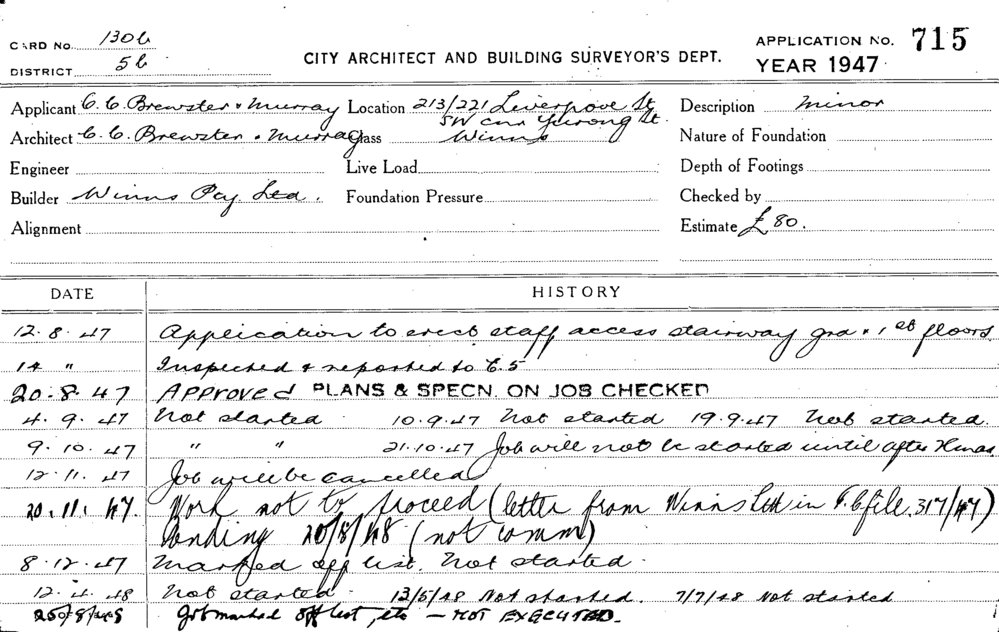 CARD NO. 130b
CITY ARCHITECT AND BUILDING SURVEYOR'S DEPT.
APPLICATION NO. 715
DISTRICT 5b
YEAR 1947
Applicant C. C. Brewster & Murray Location 213/221 Liverpool St Description minor
SW cnr Yurong St.
Architect C. C. Brewster & Murray Class Winns Nature of Foundation
Engineer Live Load Depth of Footings
Builder Winns Pty. Ltd. Foundation Pressure Checked by
Alignment Estimate £80.
DATE HISTORY
12.8.47 Application to erect staff access stairway grd & 1st floors.
14 " Inspected & reported to C.S
20.8.47 APPROVED PLANS & SPECN. ON JOB CHECKED
4.9.47 Not started 10.9.47 Not started 19.9.47 Not started.
9.10.47 " " 21.10.47 Job will not be started until after Xmas.
12.11.47 Job will be cancelled
20.11.47. Work not to proceed (letter from Winns Ltd in file 317/47)
Pending 20/8/48 (not comm)
8.12.47 Marked off list. Not started.
12.4.48 Not started 13/5/48 Not started. 7/7/48 Not started
Job marked off list, etc — NOT EXECUTED.